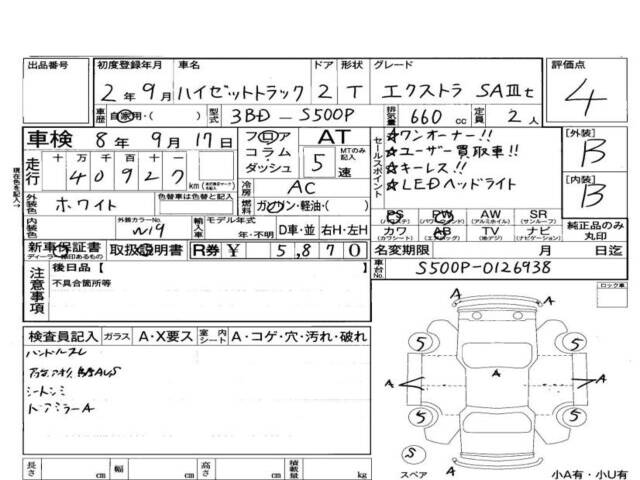 出品番号 初度登録年月 車名 ドア 形状 グレード 評価点
2年9月 ハイゼットトラック 2 T エクストラ SAⅢt 4
車歴 自家用・( ) 型式 3BD-S500P 排気量 660cc 定員 2人
車検 8年9月17日 フロア コラム ダッシュ AT MTのみ記入 5速
セールスポイント
★ワンオーナー!!
★ユーザー買取車!!
★キーレス!!
★LEDヘッドライト
[外装] B
[内装] B
現在色を記入→
走行 十万 千 百 十 一
40927km
冷房 AC
外装色 ホワイト 色替車は色替と記入 燃料 ガソリン・軽油・( )
内装色 外装カラーNo. W19 輸入車 モデル年式 年・不明 D車・並 右H・左H
PS (パワステ) PW (パワーウィンド) AW (アルミホイル) SR (サンルーフ)
カワ (カワシート) AB (エアバッグ) TV (地デジ) ナビ (ナビゲーション)
純正品のみ丸印
新車保証書 取扱説明書 R券 ¥5,870
名変期限 月 日迄
車台No. S500P-0126938
注意事項 後日品【
不具合箇所等
ロック車
検査員記入 ガラス A・X要ス 室内シート A・コゲ・穴・汚れ・破れ
ハンドルスレ
シートシミ
ドアミラーA
A
5 5
A A A
5 5
S
スペア
A
長さ cm 幅 cm 高さ cm 積載量 kg
小A有・小U有